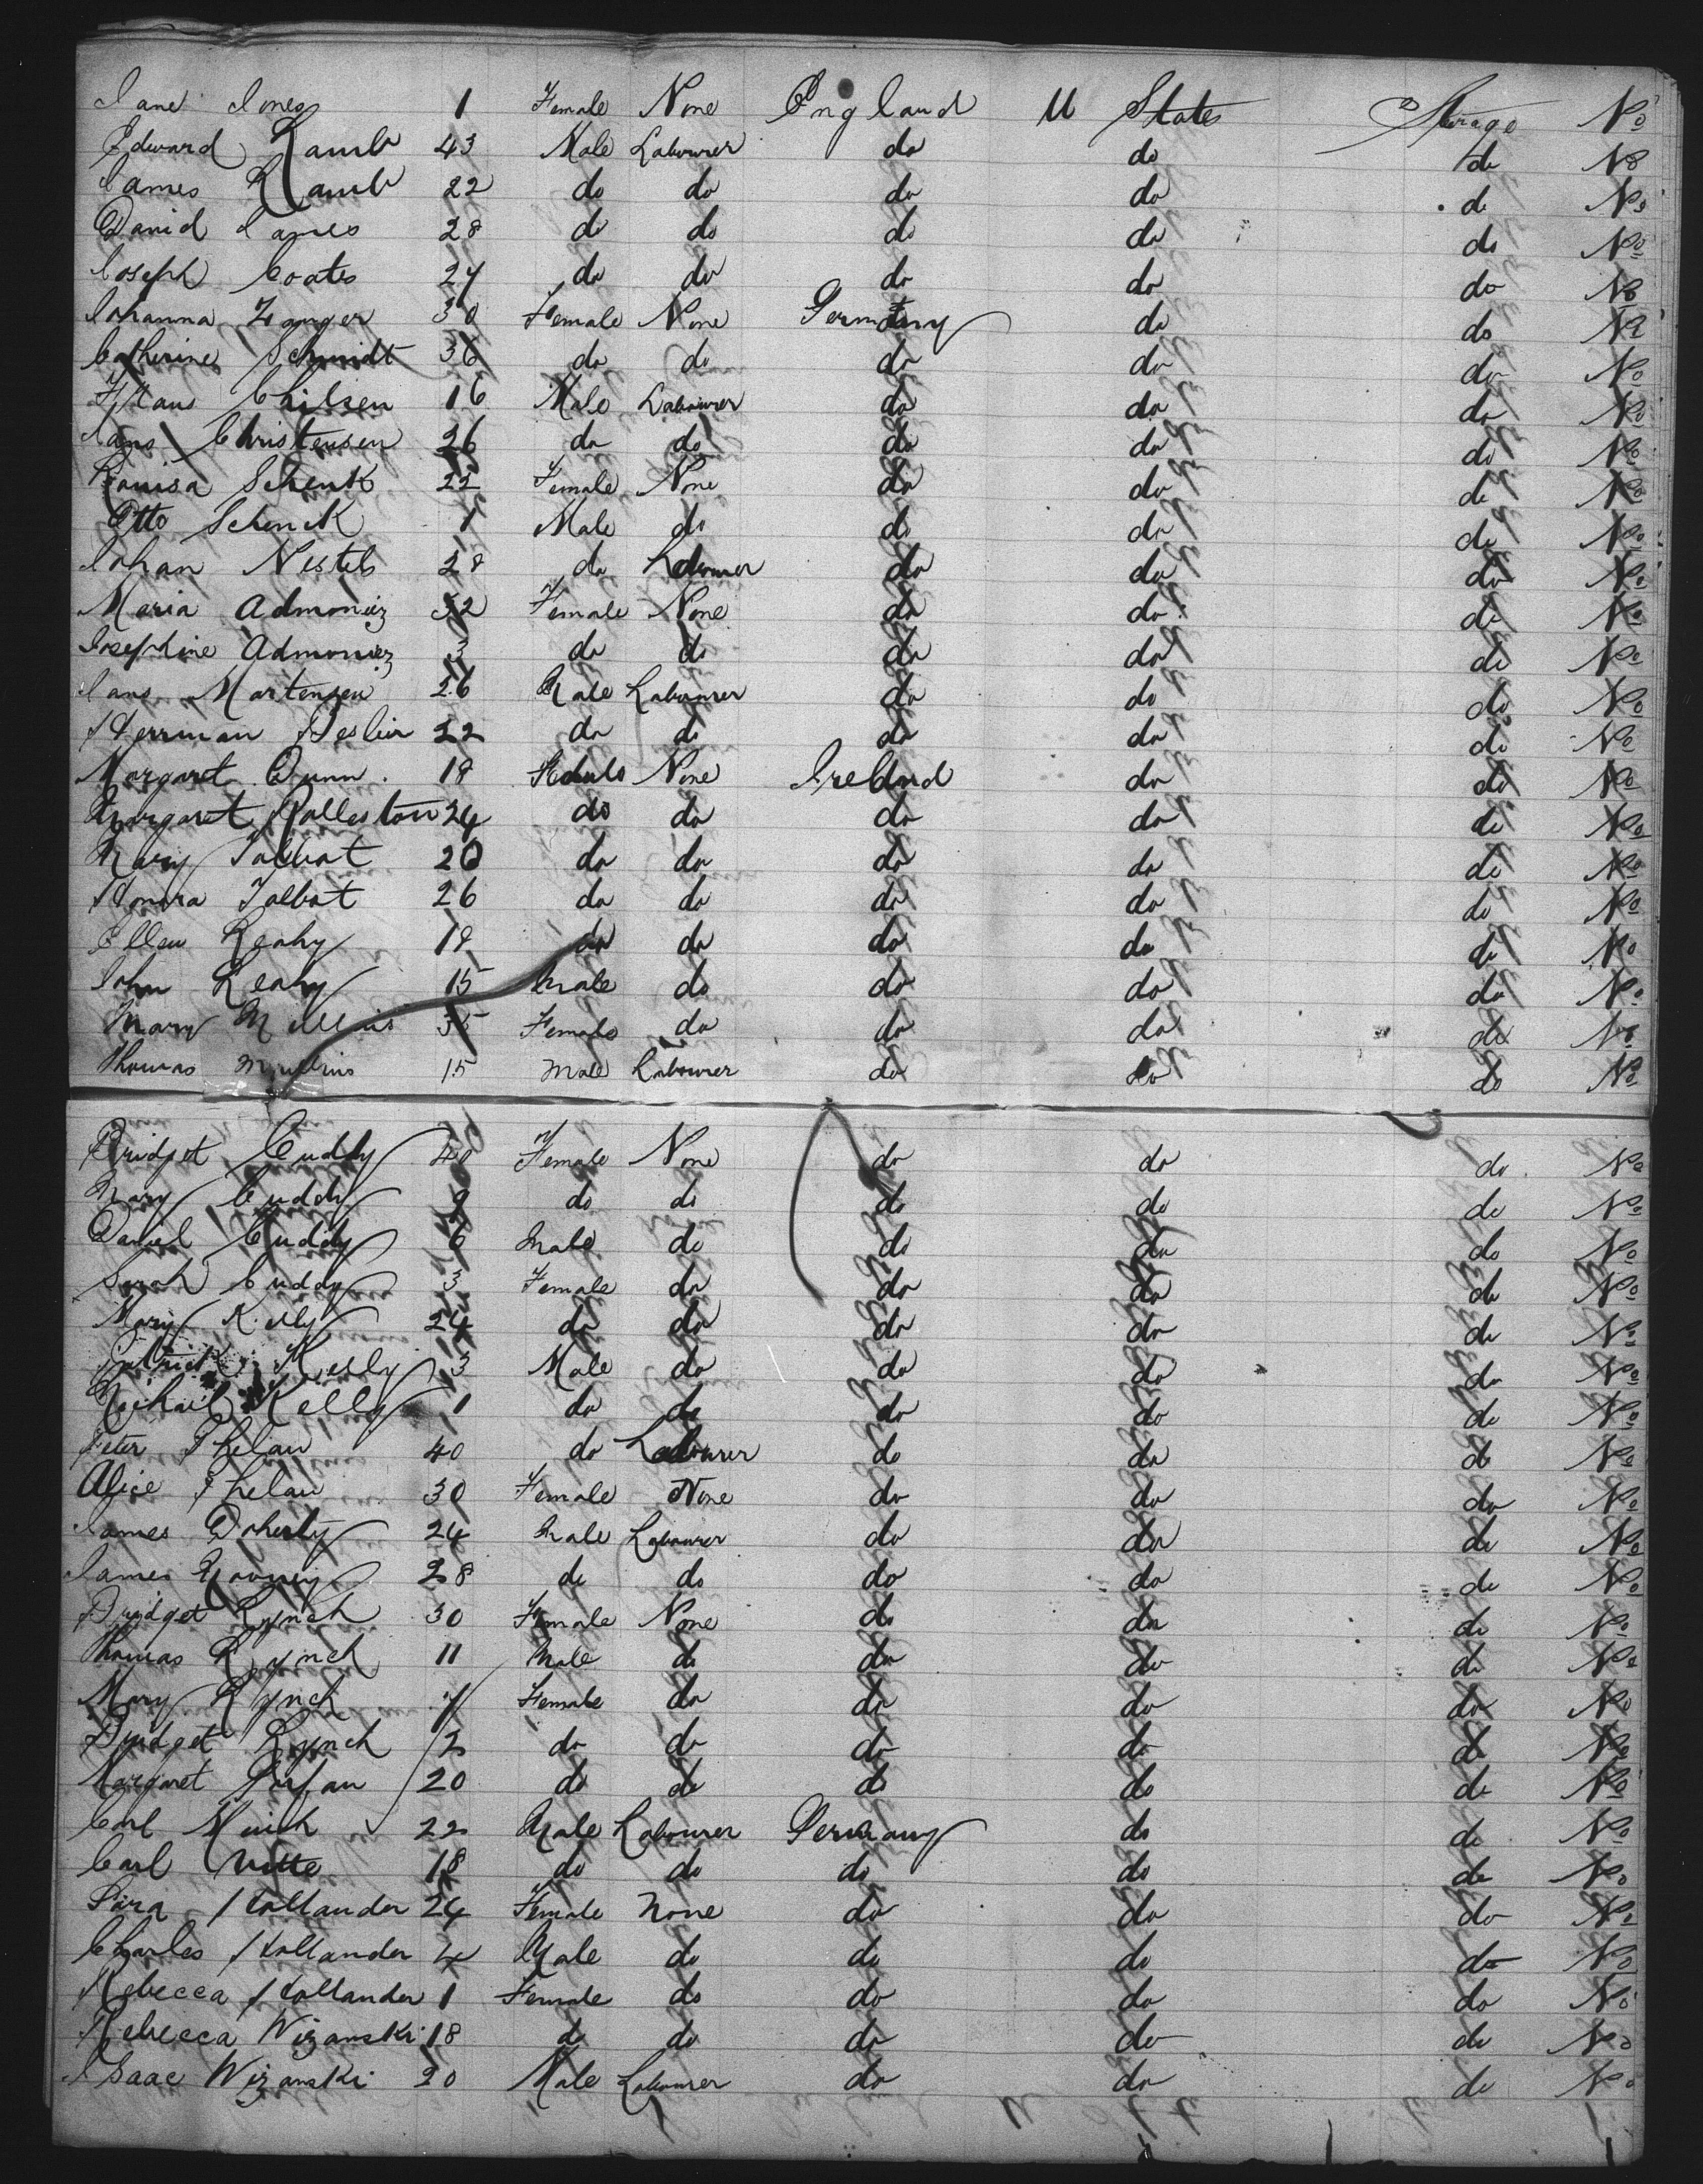 Jane Jones 1 Female None England U States Steerage No
Edward Lamb 43 Male Labourer do do do No
James Lamb 22 do do do do do No
David James 28 do do do do do No
Joseph Coates 24 do do do do do No
Johanna Zanger 30 Female None Germany do do No
Catherine Schmidt 36 do do do do do No
Hans Chilsen 16 Male Labourer do do do No
Jans Christensen 26 do do do do do No
Louisa Schenk 22 Female None do do do No
Otto Schenck 1 Male do do do do No
Johan 28 do Labourer do do do No
Maria Admoniez 32 Female None do do do No
Josephine Admoniez 3 do do do do do No
Jans Martensen 26 Male Labourer do do do No
Herrman 22 do do do do do No
Margaret Dunn 18 Female None Ireland do do No
Margaret Rolleston 24 do do do do do No
Mary Talbot 20 do do do do do No
Honora Talbot 26 do do do do do No
Ellen Leahy 19 do do do do do No
John Leahy 15 Male do do do do No
Mary Mullins 35 Female do do do do No
Thomas Mullins 15 Male Labourer do do do No
Bridget Cuddy 40 Female None do do do No
Mary Cuddy 9 do do do do do No
Daniel Cuddy 6 Male do do do do No
Sarah Cuddy 3 Female do do do do No
Mary Kelly 24 do do do do do No
Patrick Kelly 3 Male do do do do No
Michael Kelly 1 do do do do do No
Peter Phelan 40 do Labourer do do do No
Alice Phelan 30 Female None do do do No
James Doherty 24 Male Labourer do do do No
James 28 do do do do do No
Bridget Lynch 30 Female None do do do No
Thomas Lynch 11 Male do do do do No
Mary Lynch 7 Female do do do do No
Bridget Lynch 2 do do do do do No
Margaret 20 do do do do do No
Carl 22 Male Labourer Germany do do No
Carl Witte 18 do do do do do No
Sara Hollander 24 Female None do do do No
Charles Hollander 4 Male do do do do No
Rebecca Hollander 1 Female do do do do No
Rebecca Wizanski 18 do do do do do No
Isaac Wizanski 20 Male Labourer do do do No